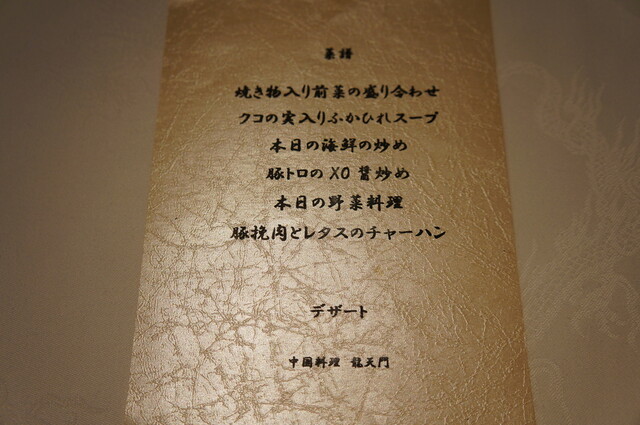 菜譜
焼き物入り前菜の盛り合わせ
クコの実入りふかひれスープ
本日の海鮮の炒め
豚トロの XO 醤炒め
本日の野菜料理
豚挽肉とレタスのチャーハン
デザート
中国料理 龍天門